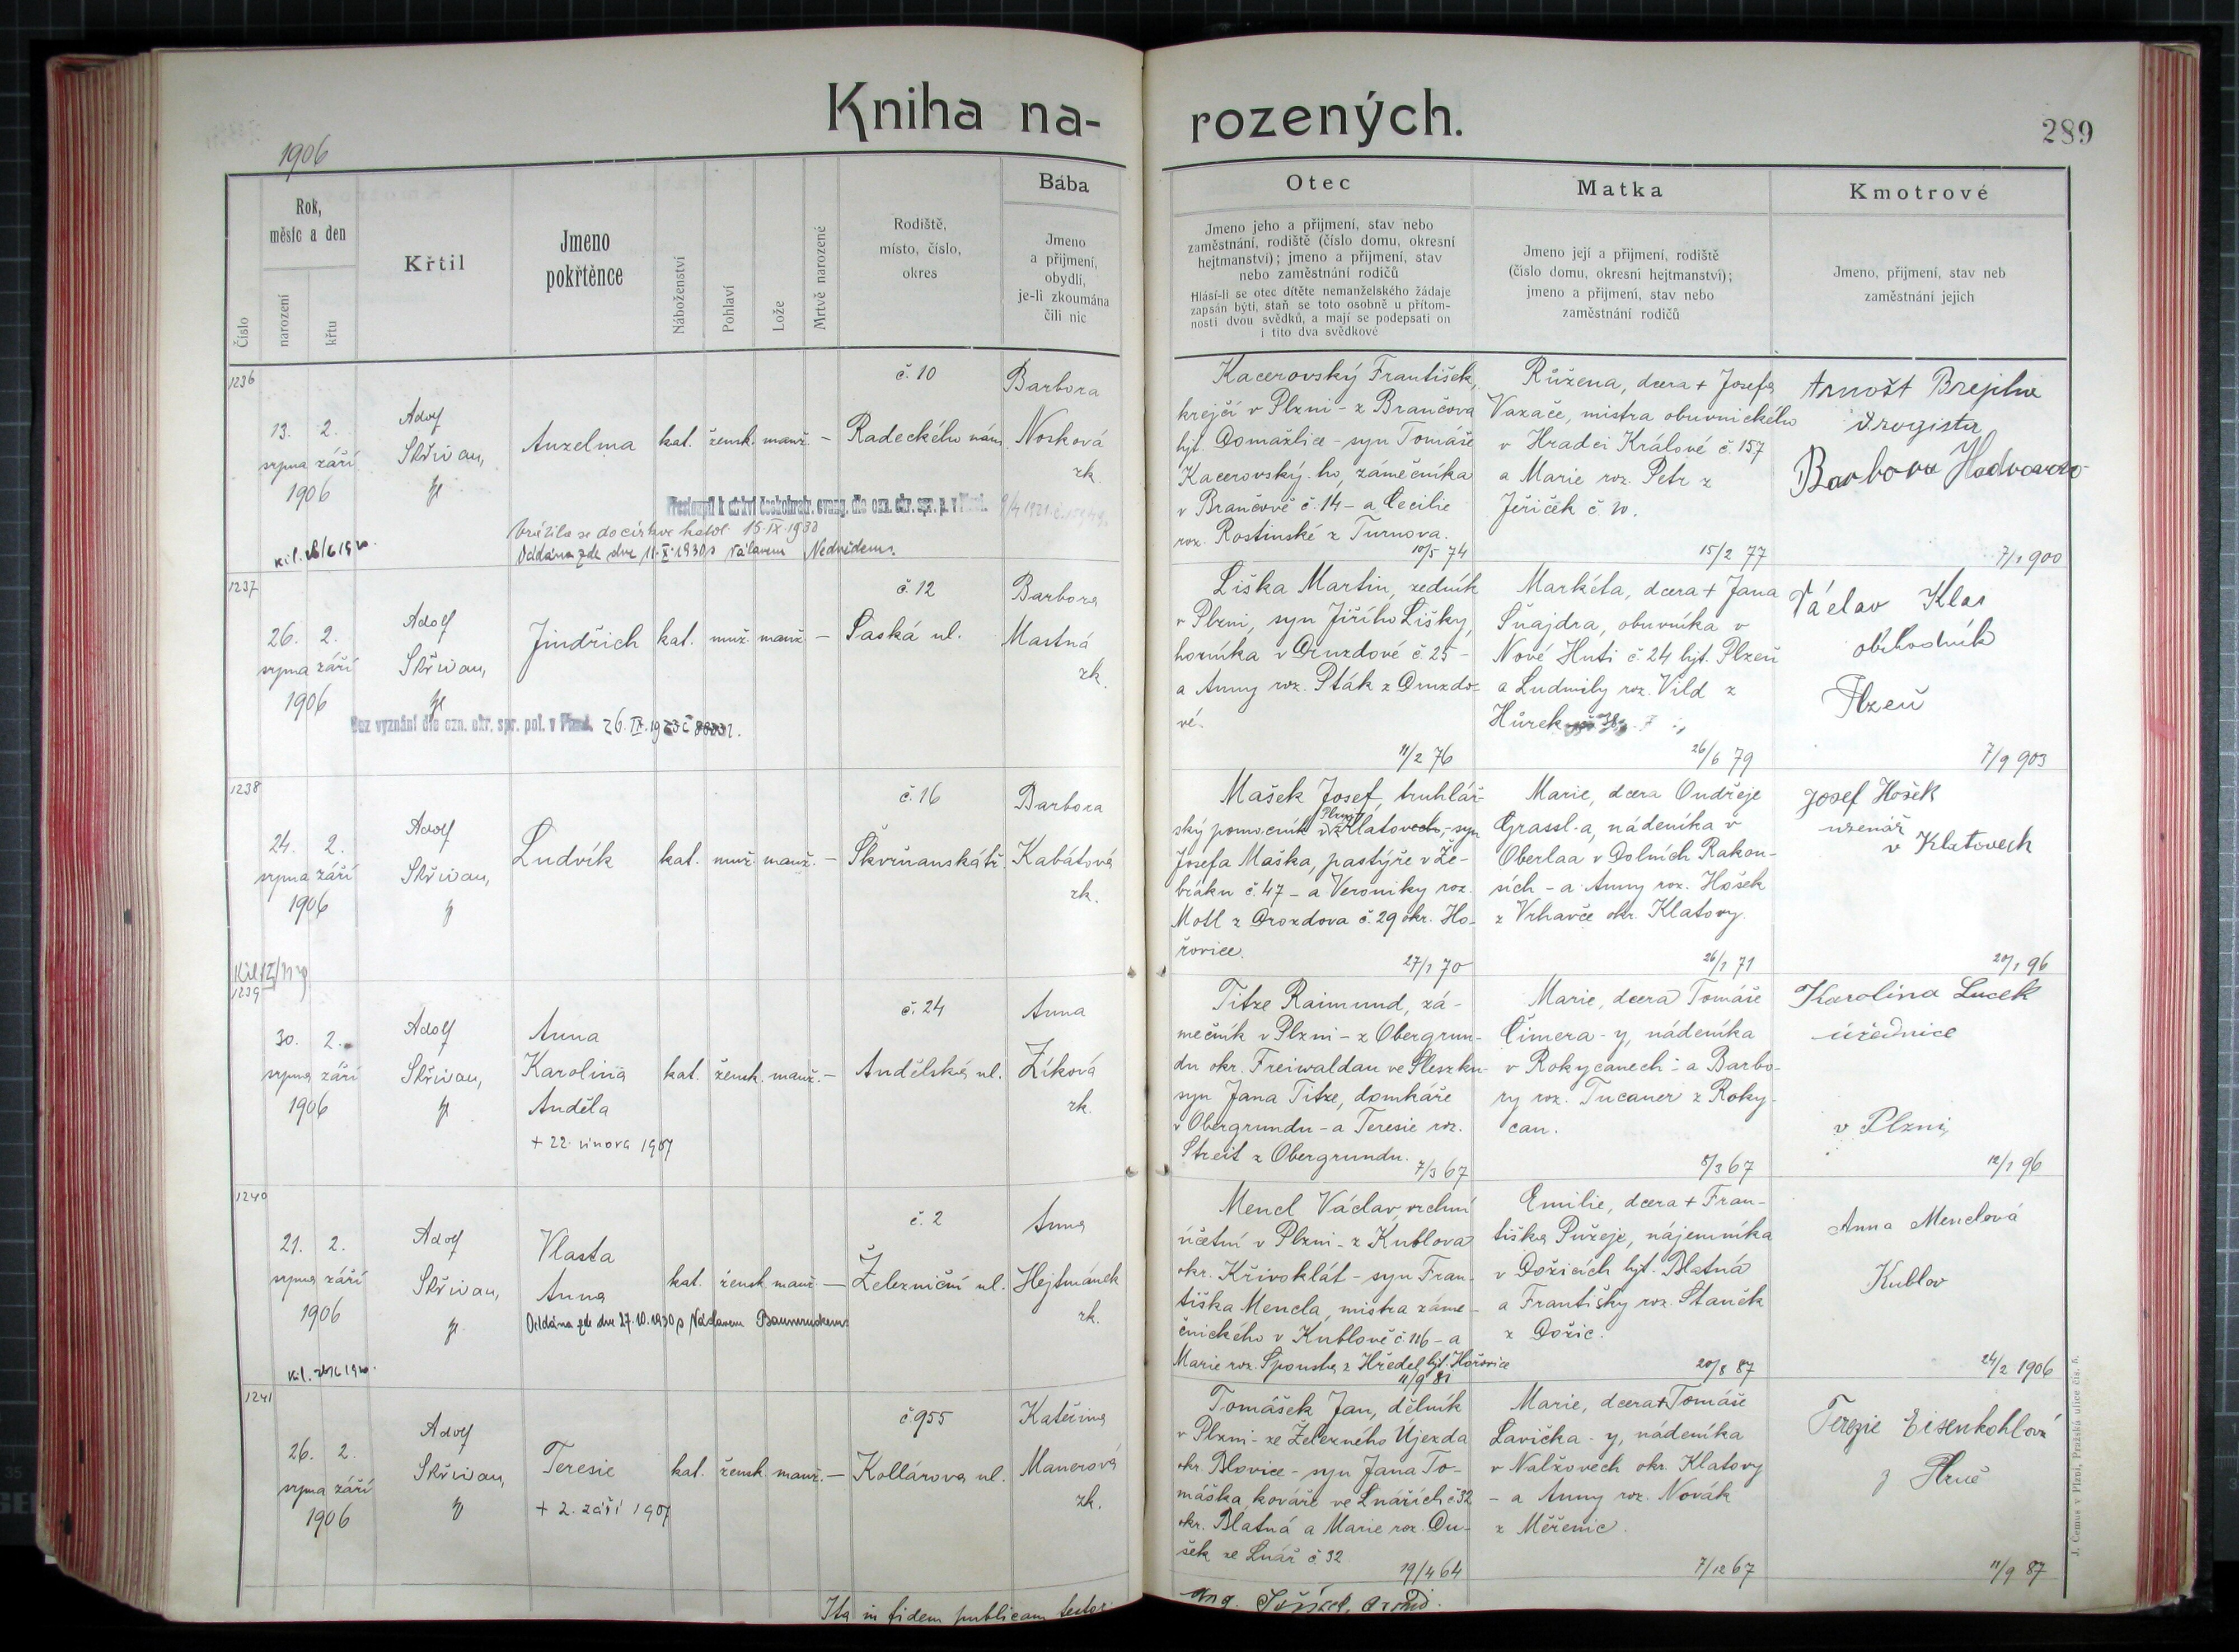 Kniha na-
rozených.
289
1906
Číslo
Rok,
měsíc a den
narození
křtu
Křtil
Jmeno
pokřtěnce
Náboženství
Pohlaví
Lože
Mrtvě narozené
Rodiště,
místo, číslo,
okres
Bába
Jmeno
a příjmení,
obydlí,
je-li zkoumána
čili nic
Otec
Jmeno jeho a příjmení, stav nebo
zaměstnání, rodiště (číslo domu, okresní
hejtmanství); jmeno a příjmení, stav
nebo zaměstnání rodičů
Hlásí-li se otec dítěte nemanželského žádaje
zapsán býti, staň se toto osobně u přítom-
nosti dvou svědků, a mají se podepsati on
i tito dva svědkové
Matka
Jmeno její a příjmení, rodiště
(číslo domu, okresní hejtmanství);
jmeno a příjmení, stav nebo
zaměstnání rodičů
Kmotrové
Jmeno, příjmení, stav neb
zaměstnání jejich
1236
13. 2.
srpna září
1906
Adolf
Skřivan,
Anzelma
kat. žensk. manž. –
č. 10
Radeckého nám.
Barbora
Nosková
zk.
Přestoupil k církvi českobratr. evang. dle ozn. okr. spr. p. v Plzni.
Vrátila se do církve katol. 15.IX.1930
Oddána zde dne 11.X.1930 s Václavem Nedvědem.
Kacerovský František,
krejčí v Plzni – z Brančova
hjt. Domažlice – syn Tomáše
Kacerovský-ho, zámečníka
v Brančově č. 14 – a Cecilie
roz. Rostinské z Turnova.
10/5 74
Růžena, dcera + Josefa
Vaxače, mistra obuvnického
v Hradci Králové č. 157
a Marie roz. Petr z
Jeřiček č. 20.
15/2 77
Arnošt Brejcha
drogista
Barbora
7/1 900
1237
26. 2.
srpna září
1906
Adolf
Skřivan,
Jindřich
kat. muž. manž –
č. 12
Saská ul.
Barbora
Mastná
zk.
Bez vyznání dle ozn. okr. spr. pol. v Plzni. 26.IX.19
Liška Martin, zedník
v Plzni, syn Jiřího Lišky,
horníka v Druzdové č. 25 –
a Anny roz. Pták z Druzdo-
vé.
11/2 76
Markéta, dcera + Jana
Šnajdra, obuvníka v
Nové Huti č. 24 hjt. Plzeň
a Ludmily roz. Vild z
Hůrek
26/6 79
Václav Klas
obchodník
Plzeň
7/9 903
1238
24. 2.
srpna září
1906
Adolf
Skřivan,
Ludvík
kat. muž. manž. –
č. 16
Škvrňanská tř.
Barbora
Kabátová
zk.
Mašek Josef, truhlář-
ský pomocník v Plzni z Klatovech, – syn
Josefa Maška, pastýře v Že-
bráku č. 47 – a Veroniky roz.
Motl z Drozdova č. 29 okr. Ho-
řovice.
27/1 70
Marie, dcera Ondřeje
Grassl-a, nádeníka v
Oberlaa v Dolních Rakou-
sích – a Anny roz. Hošek
z Vrhavče okr. Klatovy.
26/1 71
Josef Hošek
uzenář
v Klatovech
20/1 96
1239
30. 2.
srpna září
1906
Adolf
Skřivan,
Anna
Karolina
Anděla
+ 22. února 1907
kat. žensk. manž. –
č. 24
Andělská ul.
Anna
Zíková
zk.
Titze Raimund, zá-
mečník v Plzni – z Obergrun-
du okr. Freiwaldau ve Slezsku –
syn Jana Titze, domkáře
v Obergrundu – a Teresie roz.
Streit z Obergrundu.
7/3 67
Marie, dcera Tomáše
Čimera-y, nádeníka
v Rokycanech – a Barbo-
ry roz. Tucaner z Roky-
can.
8/3 67
Karolina Lucek
úřednice
v Plzni,
12/1 96
1240
21. 2.
srpna září
1906
Adolf
Skřivan,
Vlasta
Anna
kat. žensk. manž. –
č. 2
Železniční ul.
Anna
Hejtmánek
zk.
Oddána zde dne 27.10.1930 s Václavem
Mencl Václav, vrchní
účetní v Plzni – z Kublova
okr. Křivoklát – syn Fran-
tiška Mencla, mistra záme-
čnického v Kublově č. 116 – a
Marie roz. Spousta z Hředel hjt. Hořovice
11/9 81
Emilie, dcera + Fran-
tiška Pužeje, nájemníka
v Dožicích hjt. Blatná
a Františky roz. Staněk
z Dožic.
20/8 87
Anna Menclová
Kublov
24/2 1906
1241
26. 2.
srpna září
1906
Adolf
Skřivan,
Teresie
+ 2. září 1907
kat. žensk. manž. –
č 955
Kollárova ul.
Kateřina
Manerová
zk.
Tomášek Jan, dělník
v Plzni – ze Železného Újezda
okr. Blovice – syn Jana To-
máška, kováře ve Lnářích č 32
okr. Blatná a Marie roz. Du-
šek ze Lnář č. 32
19/4 64
Marie, dcera + Tomáše
Lavička-y, nádeníka
v Nalžovech okr. Klatovy
– a Anny roz. Novák
z Měřenic.
7/12 67
Terezie Eisenkohlová
z Plzně
11/9 87
Ita in fidem publicam testor:
J. Cemus v Plzni, Pražská ulice čís. 5.